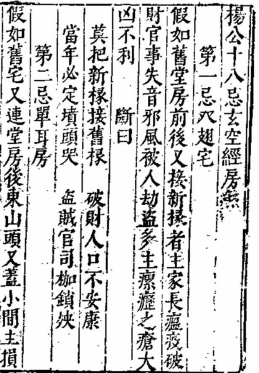 楊公十八忌玄空經房無
第一忌㸚翅宅
假如舊堂房前後又接新掾者主家長瘟疫破
財官事失音邪風被人劫盜多主瘰癧之瘡大
凶不利　斷曰
莫把新掾接舊椽　破財人口不安康
當年必定墳頭哭　盜賊官司枷鎖殃
第二忌單耳房
假如舊宅又連堂房後東山頭又蓋小間主損